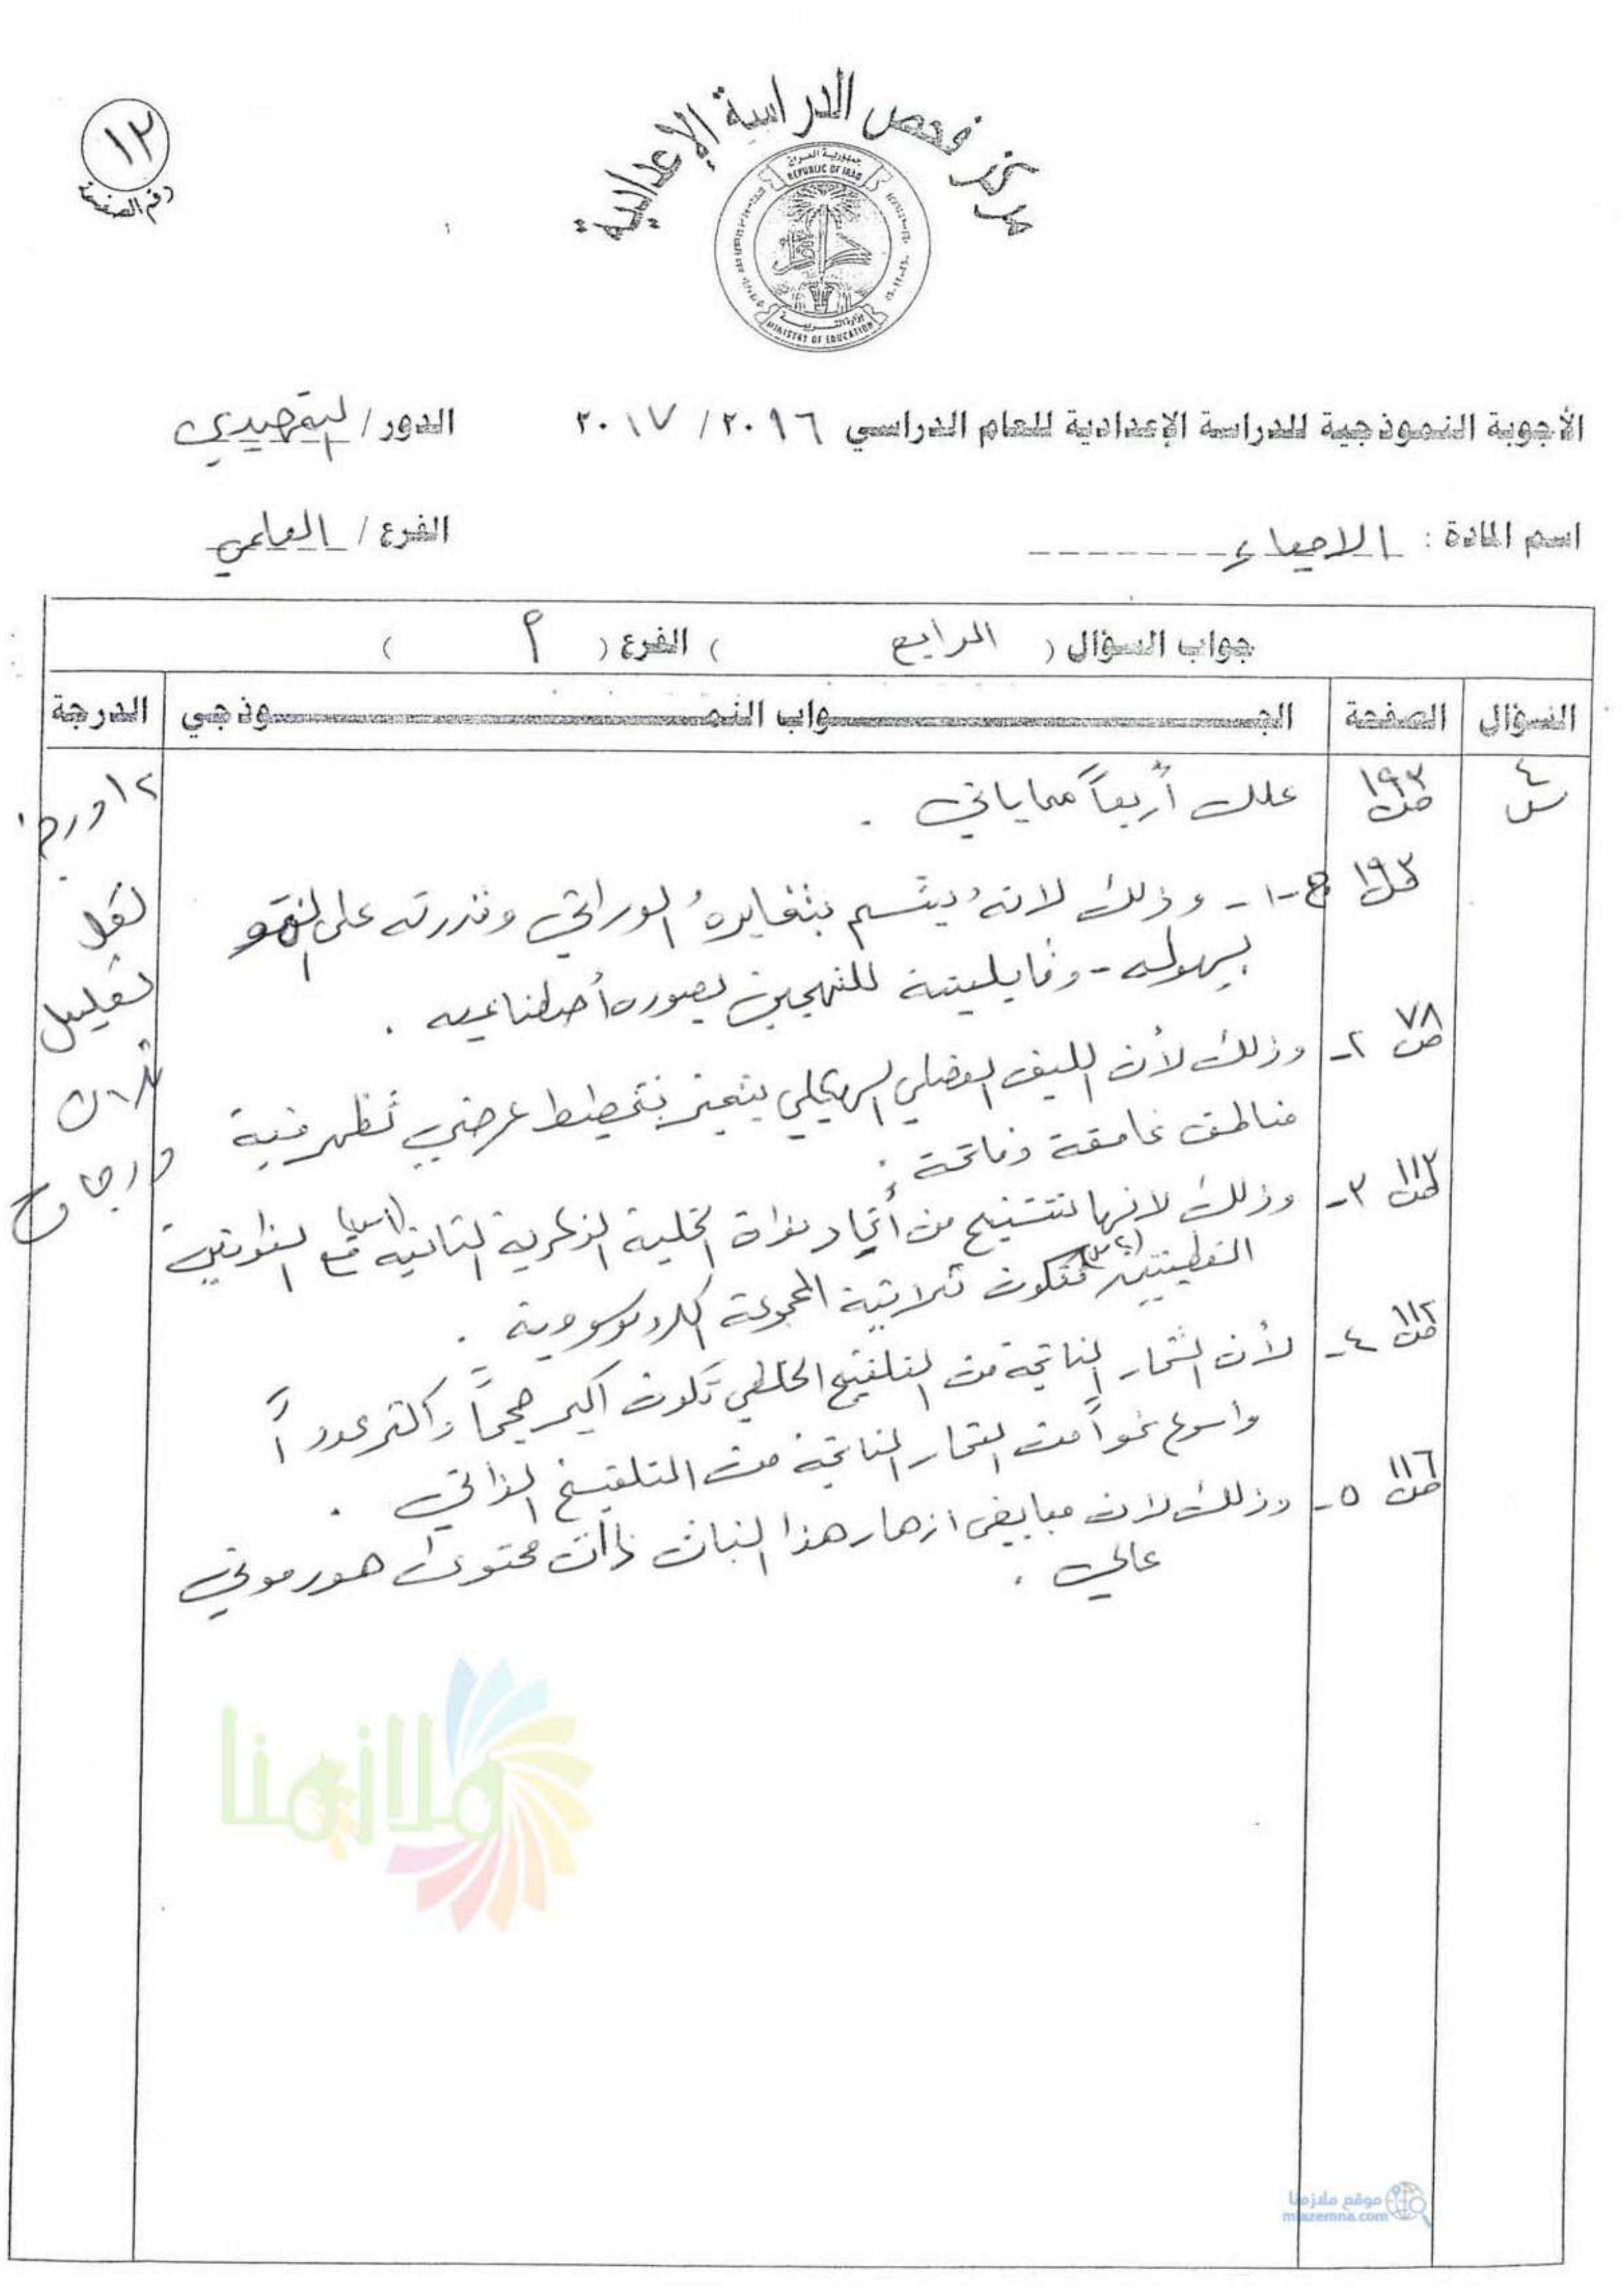 ١٢
رقم الصفحة
مركز فحص الدراسة الإعدادية
جمهورية العراق
REPUBLIC OF IRAQ
وزارة التربية
MINISTRY OF EDUCATION
الأجوبة النموذجية للدراسة الإعدادية للعام الدراسي ٢٠١٦ / ٢٠١٧ الدور / التمهيدي
اسم المادة : الاحياء الفرع / العلمي
جواب السؤال ( الرابع ) الفرع ( أ )
السؤال الصفحة الجــواب النمــوذجي الدرجة
س٤ ص١٩٣ علل أربعاً مما ياتي . ١٢ درجة
ص١٩٣ ج-١- وذلك لانه يتسم بتغايره الوراثي وقدرته على النمو
بسهوله - وقابليته للتهجين بصوره أصطناعيه .
لكل تعليل ثلاث درجات
ص٧٨ ٢- وذلك لأن الليف العضلي الهيكلي يتميز بتخطيط عرضي تظهر فيه
مناطق غامقة وفاتحة .
ص١١٢ ٣- وذلك لانها تنتج من أتحاد نواة الخلية الذكرية الثانيه (١س) مع النواتين
القطبيتين (٢س) فتكون ثلاثية المجموعة الكروموسومية .
ص١١٢ ٤- لأن الثمار الناتجة من التلقيح الخلطي تكون اكبر حجماً واكثر عدداً
واسرع نمواً من الثمار الناتجة من التلقيح الذاتي .
ص١١٦ ٥- وذلك لان مبايض ازهار هذا النبات ذات محتوى هورموني
عالي .
ملازمنا
موقع ملازمنا
mlazemna.com